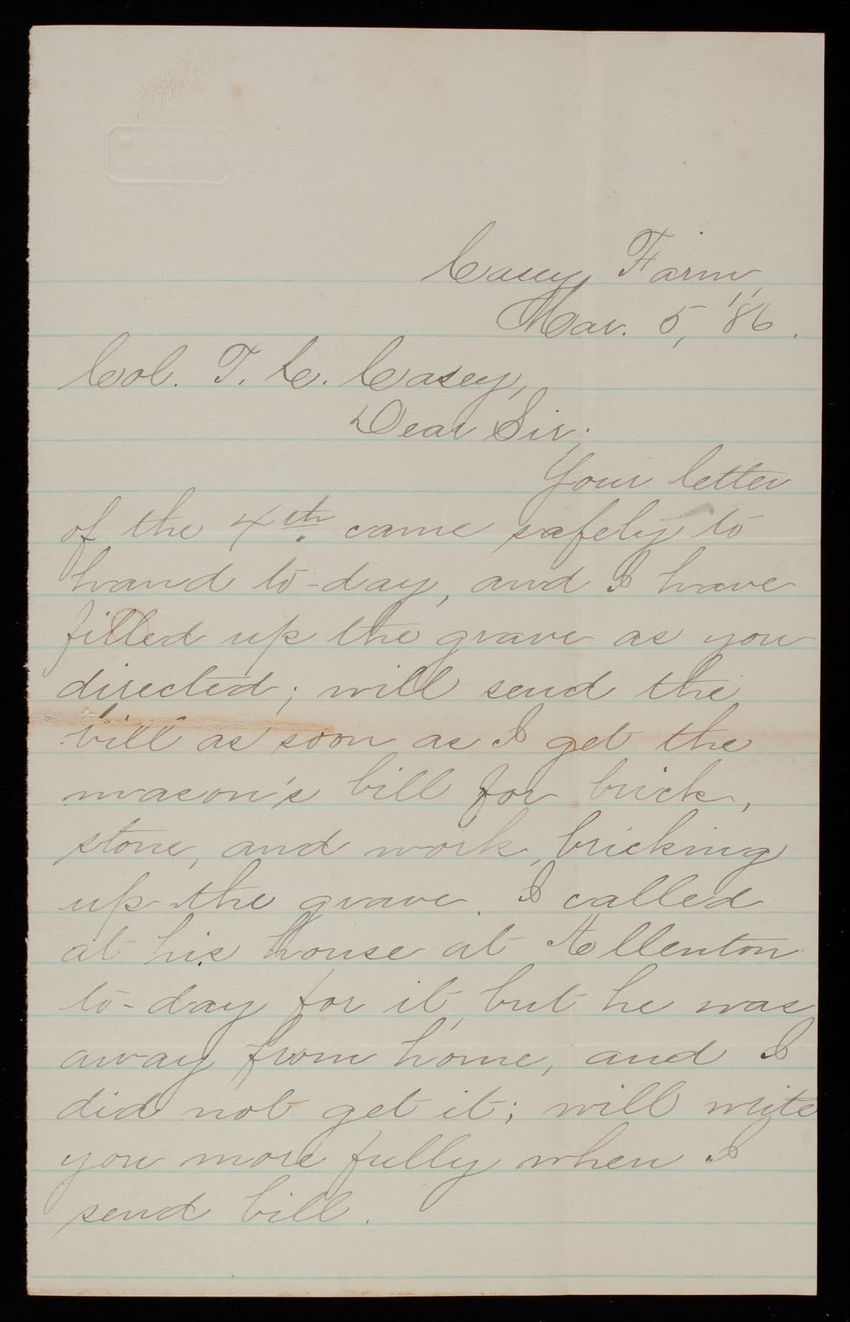 Casey Farm,
Mar. 5, '86.
Col. T. L. Casey,
Dear Sir;
Your letter
of the 4th. came safely to
hand to-day, and I have
filled up the grave as you
directed; will send the
bill as soon as I get the
mason's bill for brick,
stone, and work, bricking
up the grave. I called
at his house at Allenton
to-day for it, but he was
away from home, and I
did not get it; will write
you more fully when I
send bill.